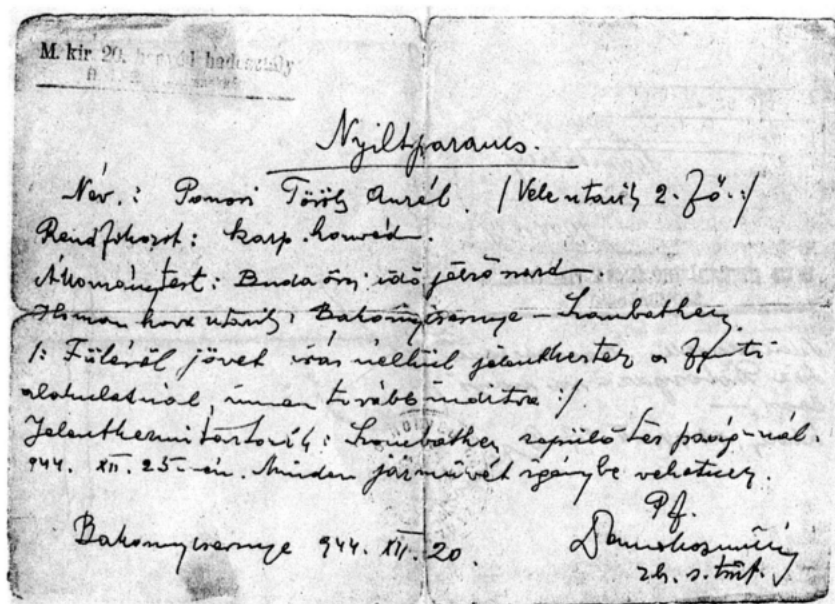 M. kir. 20. honvéd hadosztály
Nyiltparancs.
Név.: Ponori Török Aurél. /Vele utazik 2. fő.:/
Rendfokozat: karp. honvéd.
Állománytest: Budaörsi időjelző
Honnan hová utazik: Bakonycsernye – Szombathely.
/: Füléről jövet írás nélkül jelentkezter a fenti
alakulatnál, innen tovább inditva :/.
Jelentkezni tartozik: Szombathely repülő tes pság-nál.
944. XII. 25.-én. Minden járművét igénybe vehetnek.
Pf.
Bakonycsernye 944. XII. 20.